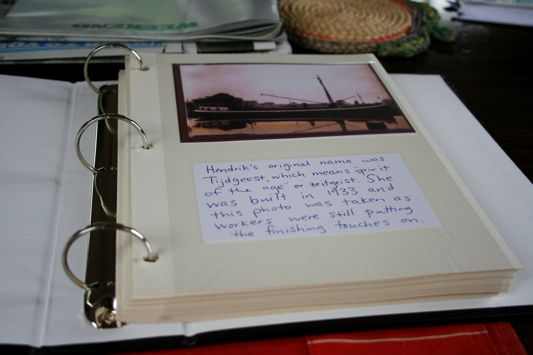 WEEKEND
Hendrik's original name was
Tijdgeest, which means "spirit
of the age" or zeitgeist. She
was built in 1933 and
this photo was taken as
workers were still putting
the finishing touches on.